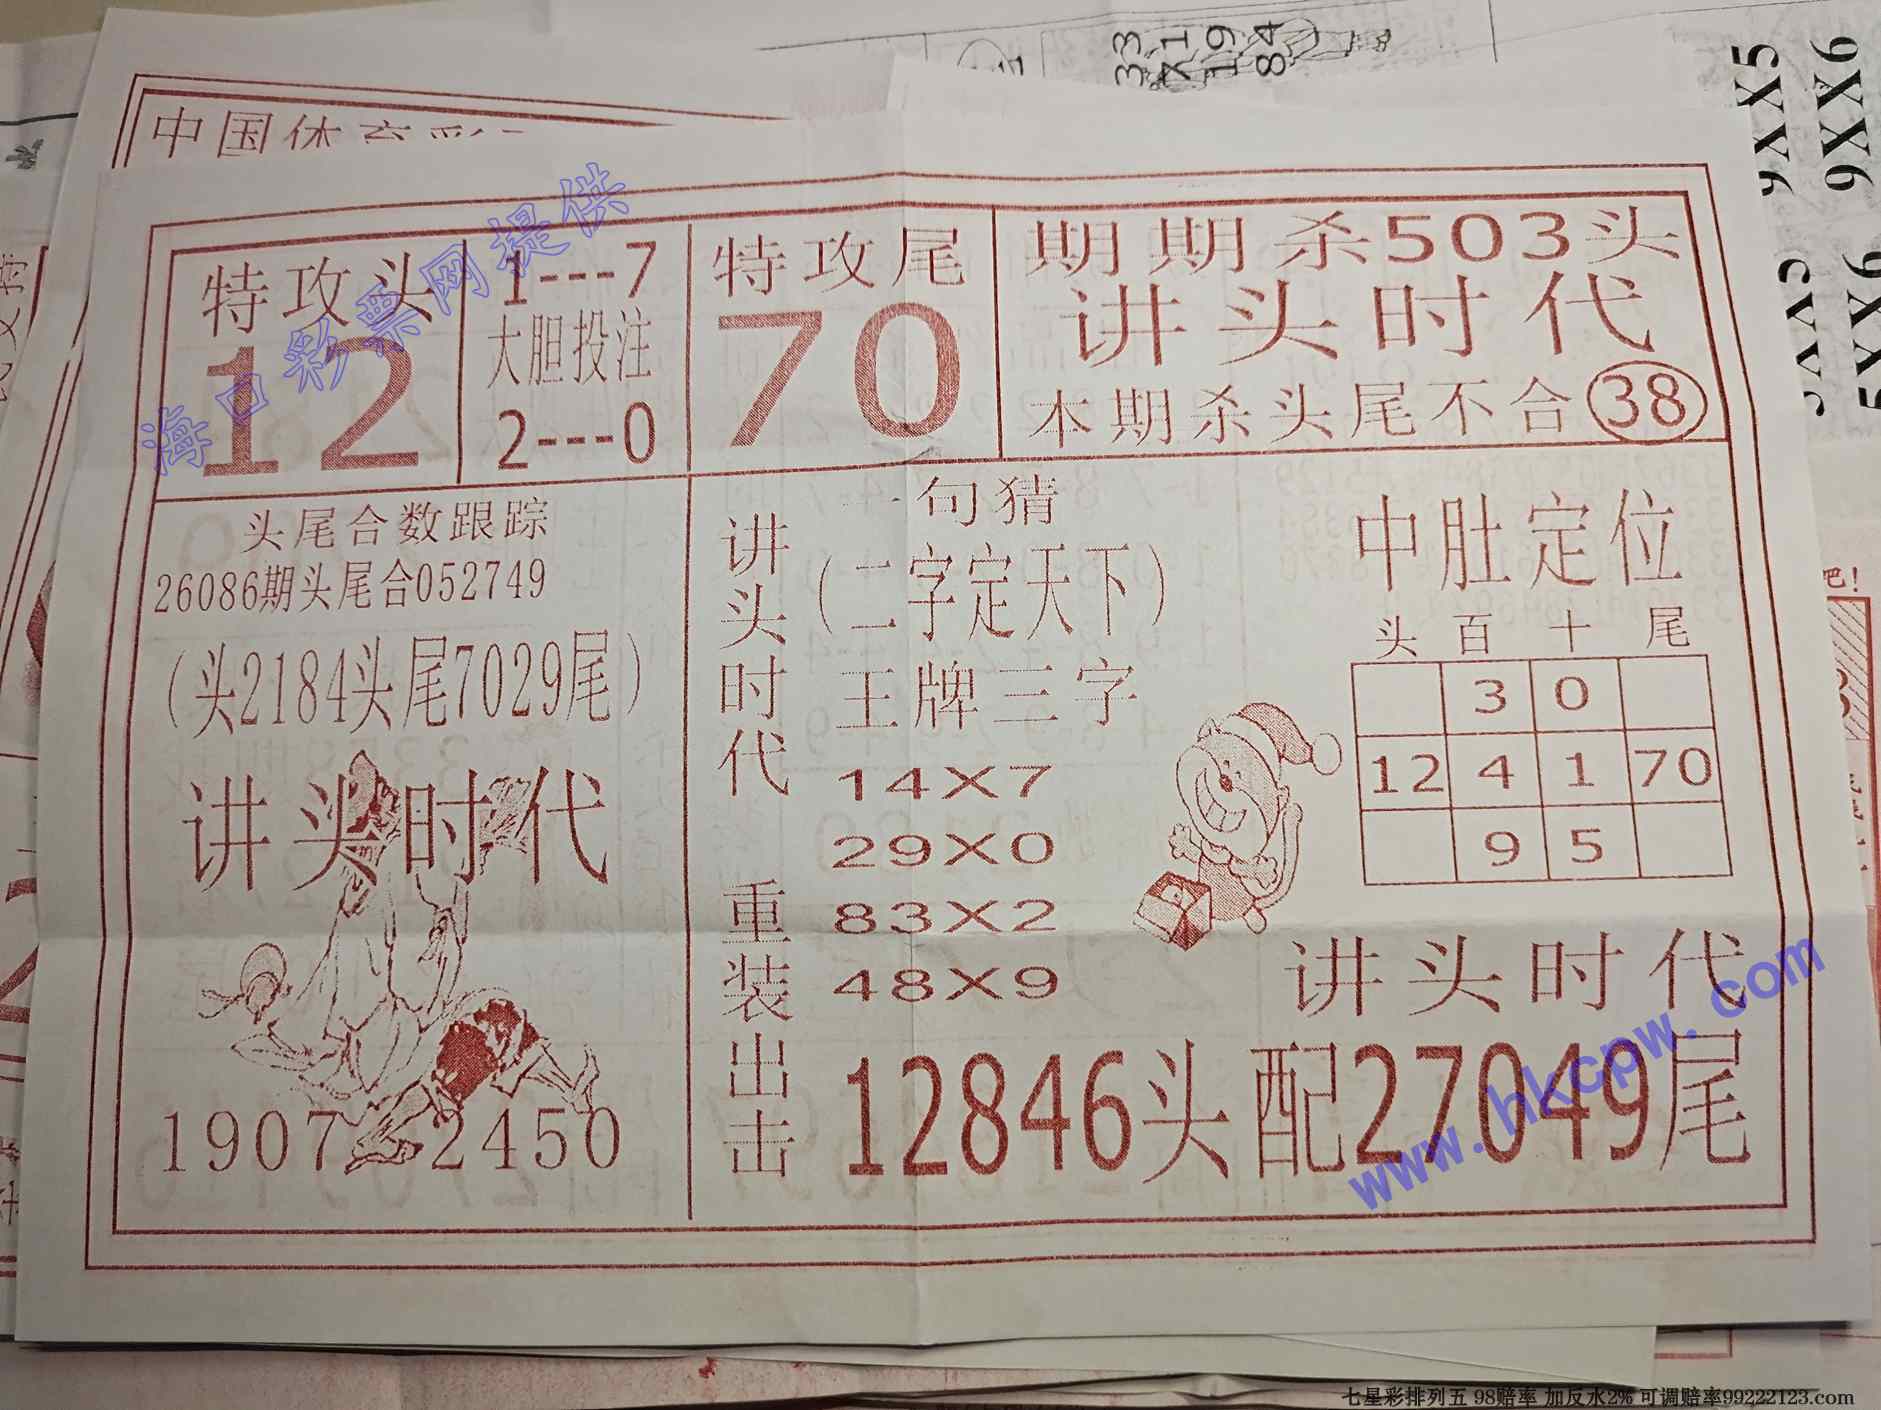 33
71
19
84
9XX5
9XX6
5XX6
中国体育彩
海口彩票网提供
特攻头
12
1---7
大胆投注
2---0
特攻尾
70
期期杀503头
讲头时代
本期杀头尾不合38
头尾合数跟踪
26086期头尾合052749
(头2184头尾7029尾)
讲头时代
1907 2450
讲头时代 重装出击
一句猜
(二字定天下)
王牌三字
14X7
29X0
83X2
48X9
中肚定位
头 百 十 尾
3 0
12 4 1 70
9 5
讲头时代
12846头配27049尾
www.hkcpw.com
吧!
七星彩排列五 98赔率 加反水2% 可调赔率99222123.com